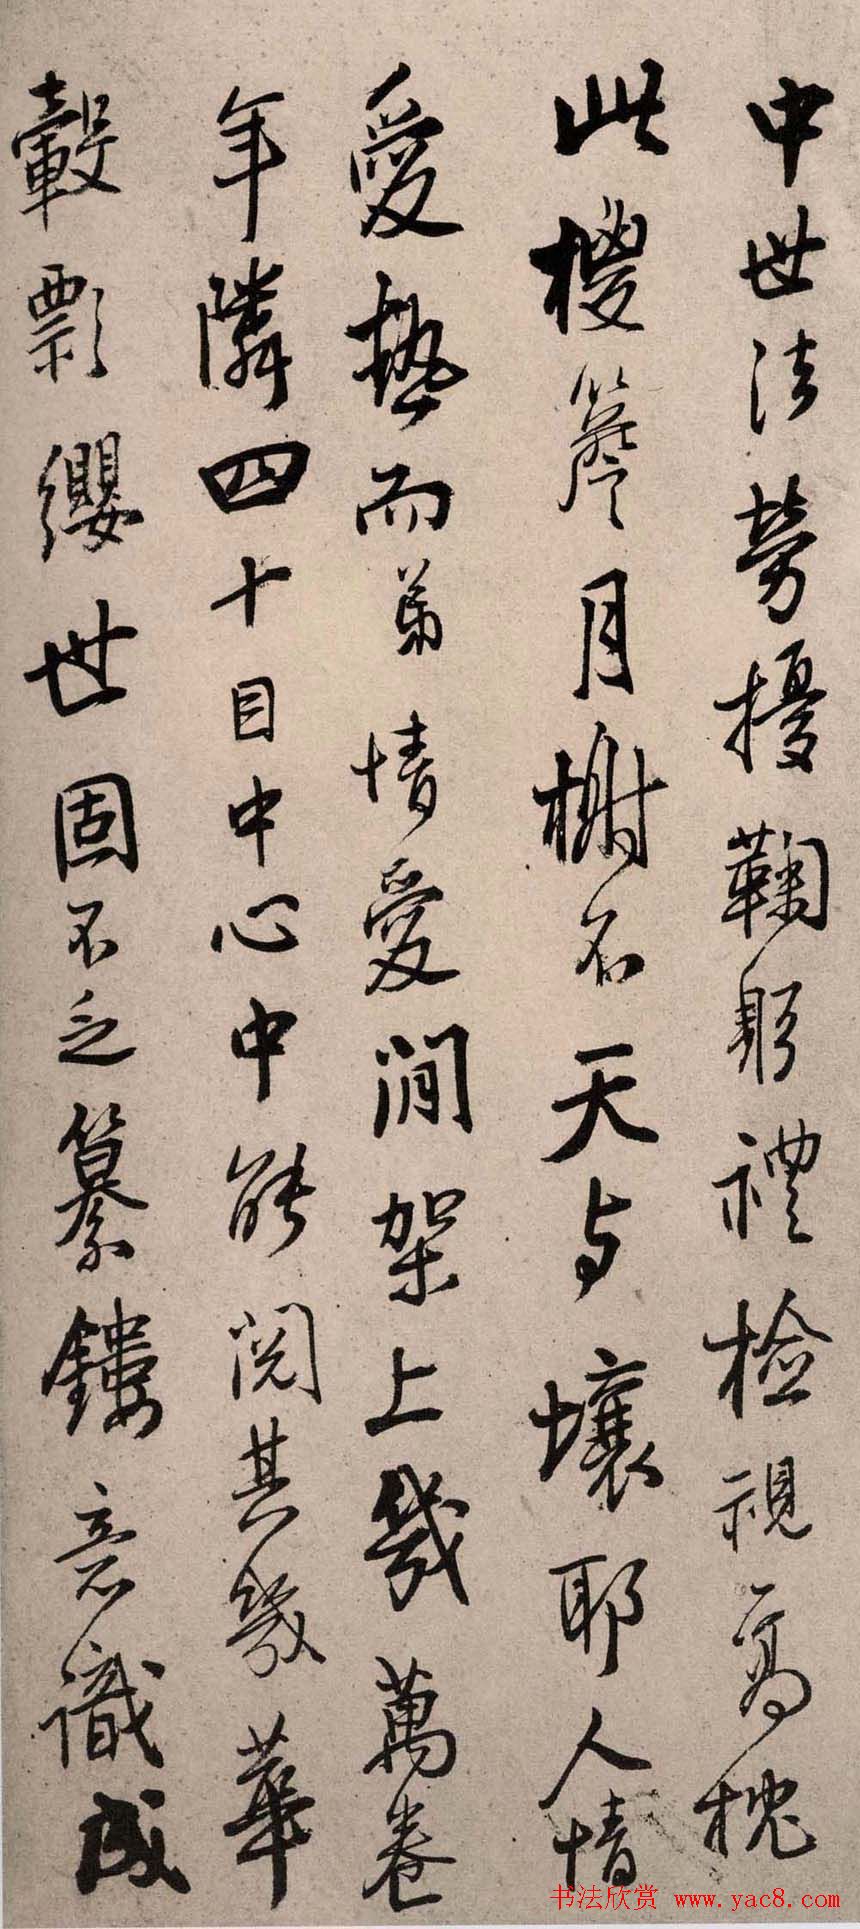 中世法勞擾鞠躬禮檢視高枕
此榝簷月榭石天与壤耶人情
愛埶而弟情愛澗架上幾萬卷
年隣四十目中心中能閱其幾華
轂影纓世固不乏纂鏤意識成
书法欣赏 www.yac8.com